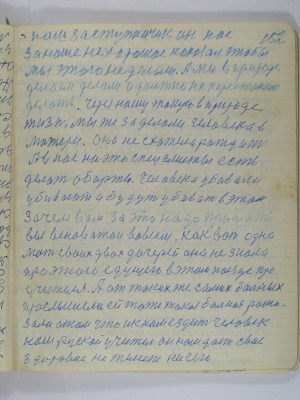 наш заступник он нас
за наше нехорошее наказал чтобы
мы этого не делали. А мы в природе
делали делаем и делать не перестанем
делать. Через нашу такую в природе
жизнь. Мы же заделали человека в
матери. Она не схотела рождать
А в нас на это специалисты есть
делать аборты. Человека убивали
убивают и будут убивать в этом
Зачем вам за это надо
вы виноватой во всем. Как вот одна
мать своих двух дочерей она не знала
про этого с душею в этом поезде про
учителя. А от таких же самых больных
прослышила ей тоже такая больная расска-
зала о том что и к нам ездит человек
наш русской учитель он нам дает свое
здоровье не тяжело ничего